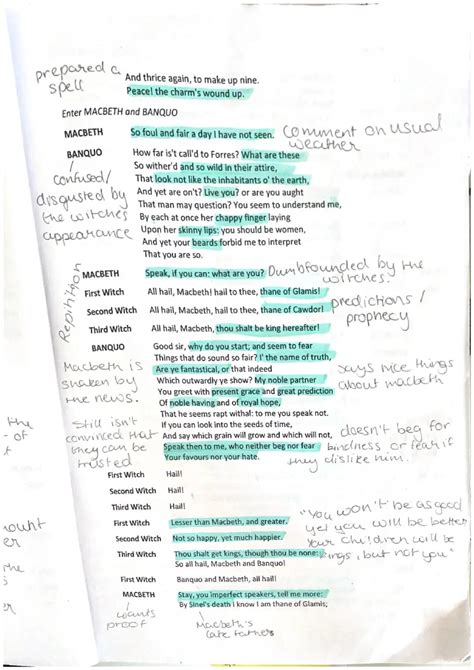 prepared a
spell
And thrice again, to make up nine.
Peace! the charm's wound up.
Enter MACBETH and BANQUO
MACBETH So foul and fair a day I have not seen.
comment on usual
weather
BANQUO How far is't call'd to Forres? What are these
So wither'd and so wild in their attire,
That look not like the inhabitants o' the earth,
And yet are on't? Live you? or are you aught
That man may question? You seem to understand me,
By each at once her chappy finger laying
Upon her skinny lips: you should be women,
And yet your beards forbid me to interpret
That you are so.
confused/
disgusted by
the witches
appearance
MACBETH Speak, if you can: what are you?
Dumbfounded by the
witches.
First Witch All hail, Macbeth! hail to thee, thane of Glamis!
Second Witch All hail, Macbeth, hail to thee, thane of Cawdor!
Third Witch All hail, Macbeth, thou shalt be king hereafter!
Repitition
predictions /
prophecy
BANQUO Good sir, why do you start; and seem to fear
Things that do sound so fair? I' the name of truth,
Are ye fantastical, or that indeed
Which outwardly ye show? My noble partner
You greet with present grace and great prediction
Of noble having and of royal hope,
That he seems rapt withal: to me you speak not.
If you can look into the seeds of time,
And say which grain will grow and which will not,
Speak then to me, who neither beg nor fear
Your favours nor your hate.
Macbeth is
shaken by
the news.
says nice things
about macbeth
Still isn't
convinced that
they can be
trusted
doesn't beg for
kindness or fear if
they dislike him.
First Witch Hail!
Second Witch Hail!
Third Witch Hail!
First Witch Lesser than Macbeth, and greater.
Second Witch Not so happy, yet much happier.
Third Witch Thou shalt get kings, though thou be none:
So all hail, Macbeth and Banquo!
"You won't be as good
yet you will be better
Your children will be
kings, but not you"
First Witch Banquo and Macbeth, all hail!
MACBETH Stay, you imperfect speakers, tell me more:
By Sinel's death I know I am thane of Glamis;
wants
proof
Macbeth's
late father
the
of